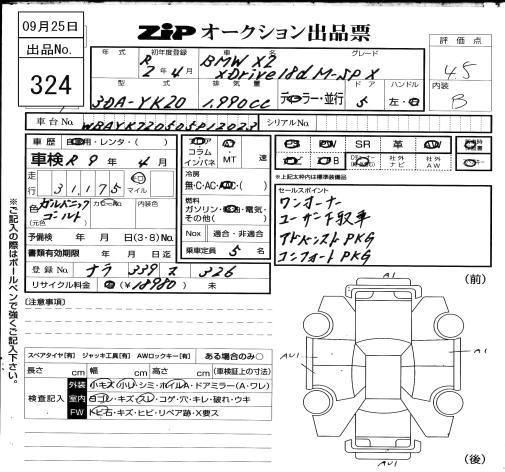 09月25日
ZiPオークション出品票
出品No.
324
年式 初年度登録 車名 グレード
R 2年4月 BMW X2 xDrive18d M-SP X
評価点
4.5
内装
B
型式 排気量 ドア ハンドル
3DA-YK20 1,990cc ディーラー・並行 5 左・右
車台No. WBAYK7205 シリアルNo.
車歴 自家用・レンタ・( )
車検 R9年4月
走行 31,175 キロ マイル
色 ガルバニックゴールド カラーNo.
(元色)
予備検 年 月 日(3・8)No.
書類有効期限 年 月 日迄
登録No. ナラ 339 ス 326
リサイクル料金 済(¥18980) 未
コラム インパネ AT・MT 速
冷房
無・C・AC・AAC・( )
燃料
ガソリン・軽油・電気・その他( )
Nox 適合・非適合
乗車定員 5 名
PS PW SR 革 AW
ナビ TV 社外ナビ 社外AW
*上記太枠内は標準装備品
セールスポイント
ワンオーナー
ユーザー下取車
アドバンストPKG
コンフォートPKG
(注意事項)
スペアタイヤ[有] ジャッキ工具[有] AWロックキー[有] ある場合のみ○
長さ cm 幅 cm 高さ cm (車検証上の寸法)
検査記入
外装 小キズ(小)・シミ・ホイルA・ドアミラー(A・ワレ)
室内 ヨゴレ・キズ・スレ・コゲ・穴・キレ・破れ・ウキ
FW トビ石・キズ・ヒビ・リペア跡・X要ス
※ご記入の際はボールペンで強くご記入下さい。
(前)
A1
AU1
AU1
A1
(後)